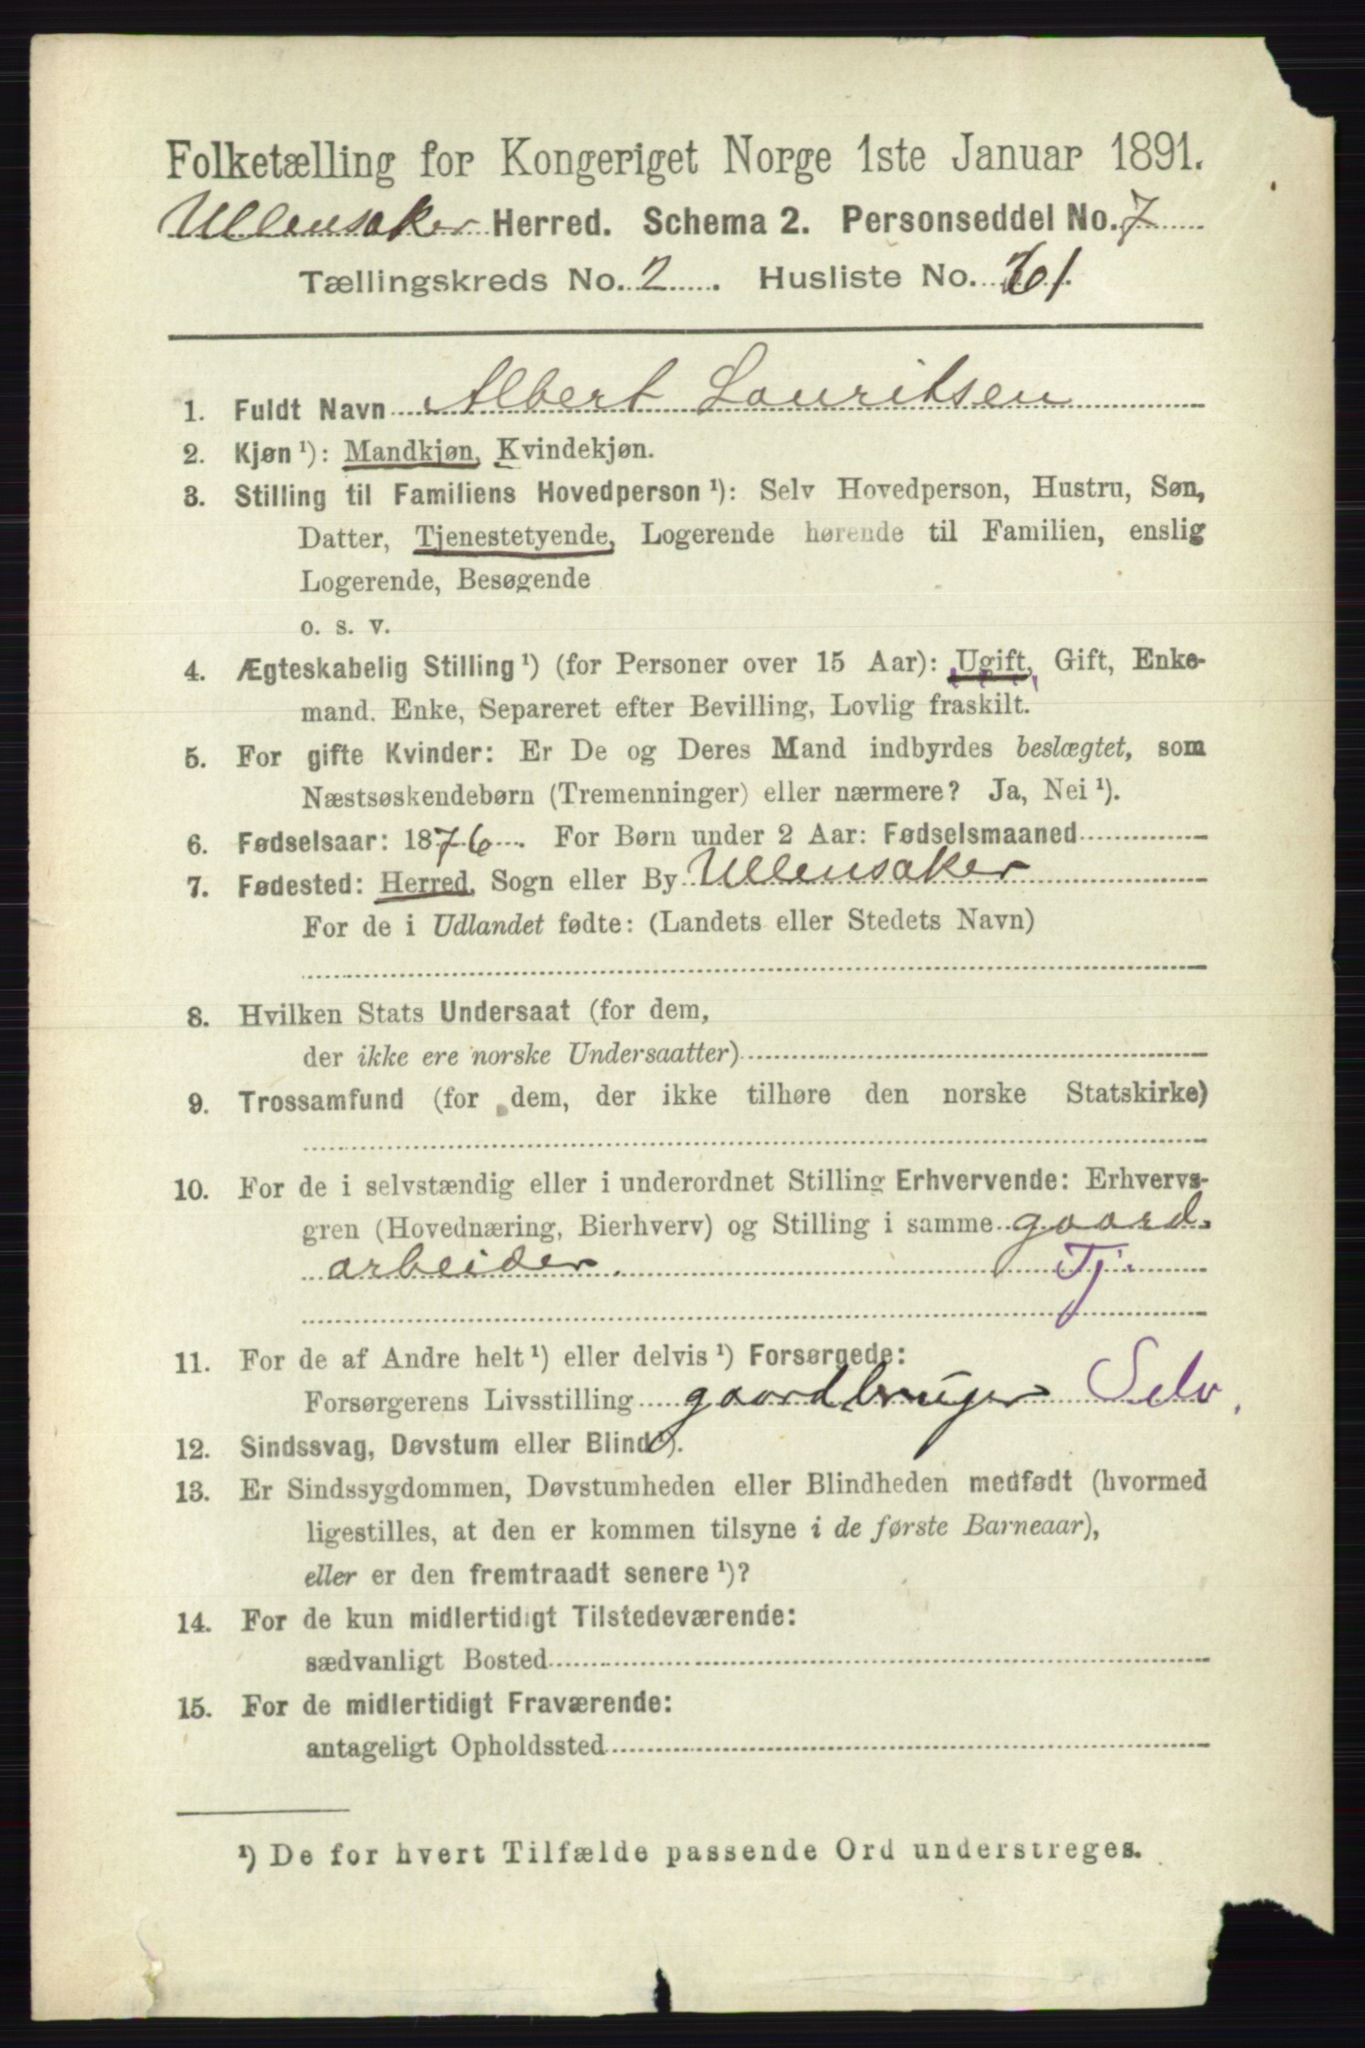 Folketælling for Kongeriget Norge 1ste Januar 1891.
Ullensaker Herred. Schema 2. Personseddel No. 7
Tællingskreds No. 2. Husliste No. 61.
1. Fuldt Navn Albert Lauritsen
2. Kjøn ¹): Mandkjøn, Kvindekjøn.
3. Stilling til Familiens Hovedperson ¹): Selv Hovedperson, Hustru, Søn,
Datter, Tjenestetyende, Logerende hørende til Familien, enslig
Logerende, Besøgende
o. s. v.
4. Ægteskabelig Stilling ¹) (for Personer over 15 Aar): Ugift, Gift, Enke-
mand. Enke, Separeret efter Bevilling, Lovlig fraskilt.
5. For gifte Kvinder: Er De og Deres Mand indbyrdes beslægtet, som
Næstsøskendebørn (Tremenninger) eller nærmere? Ja, Nei ¹).
6. Fødselsaar: 1876. For Børn under 2 Aar: Fødselsmaaned
7. Fødested: Herred, Sogn eller By Ullensaker
For de i Udlandet fødte: (Landets eller Stedets Navn)
8. Hvilken Stats Undersaat (for dem,
der ikke ere norske Undersaatter)
9. Trossamfund (for dem, der ikke tilhøre den norske Statskirke)
10. For de i selvstændig eller i underordnet Stilling Erhvervende: Erhvervs-
gren (Hovednæring, Bierhverv) og Stilling i samme gaard.
arbeider. Tj.
11. For de af Andre helt ¹) eller delvis ¹) Forsørgede:
Forsørgerens Livsstilling gaardbruger Selv.
12. Sindssvag, Døvstum eller Blind ¹).
13. Er Sindssygdommen, Døvstumheden eller Blindheden medfødt (hvormed
ligestilles, at den er kommen tilsyne i de første Barneaar),
eller er den fremtraadt senere ¹)?
14. For de kun midlertidigt Tilstedeværende:
sædvanligt Bosted
15. For de midlertidigt Fraværende:
antageligt Opholdssted
¹) De for hvert Tilfælde passende Ord understreges.